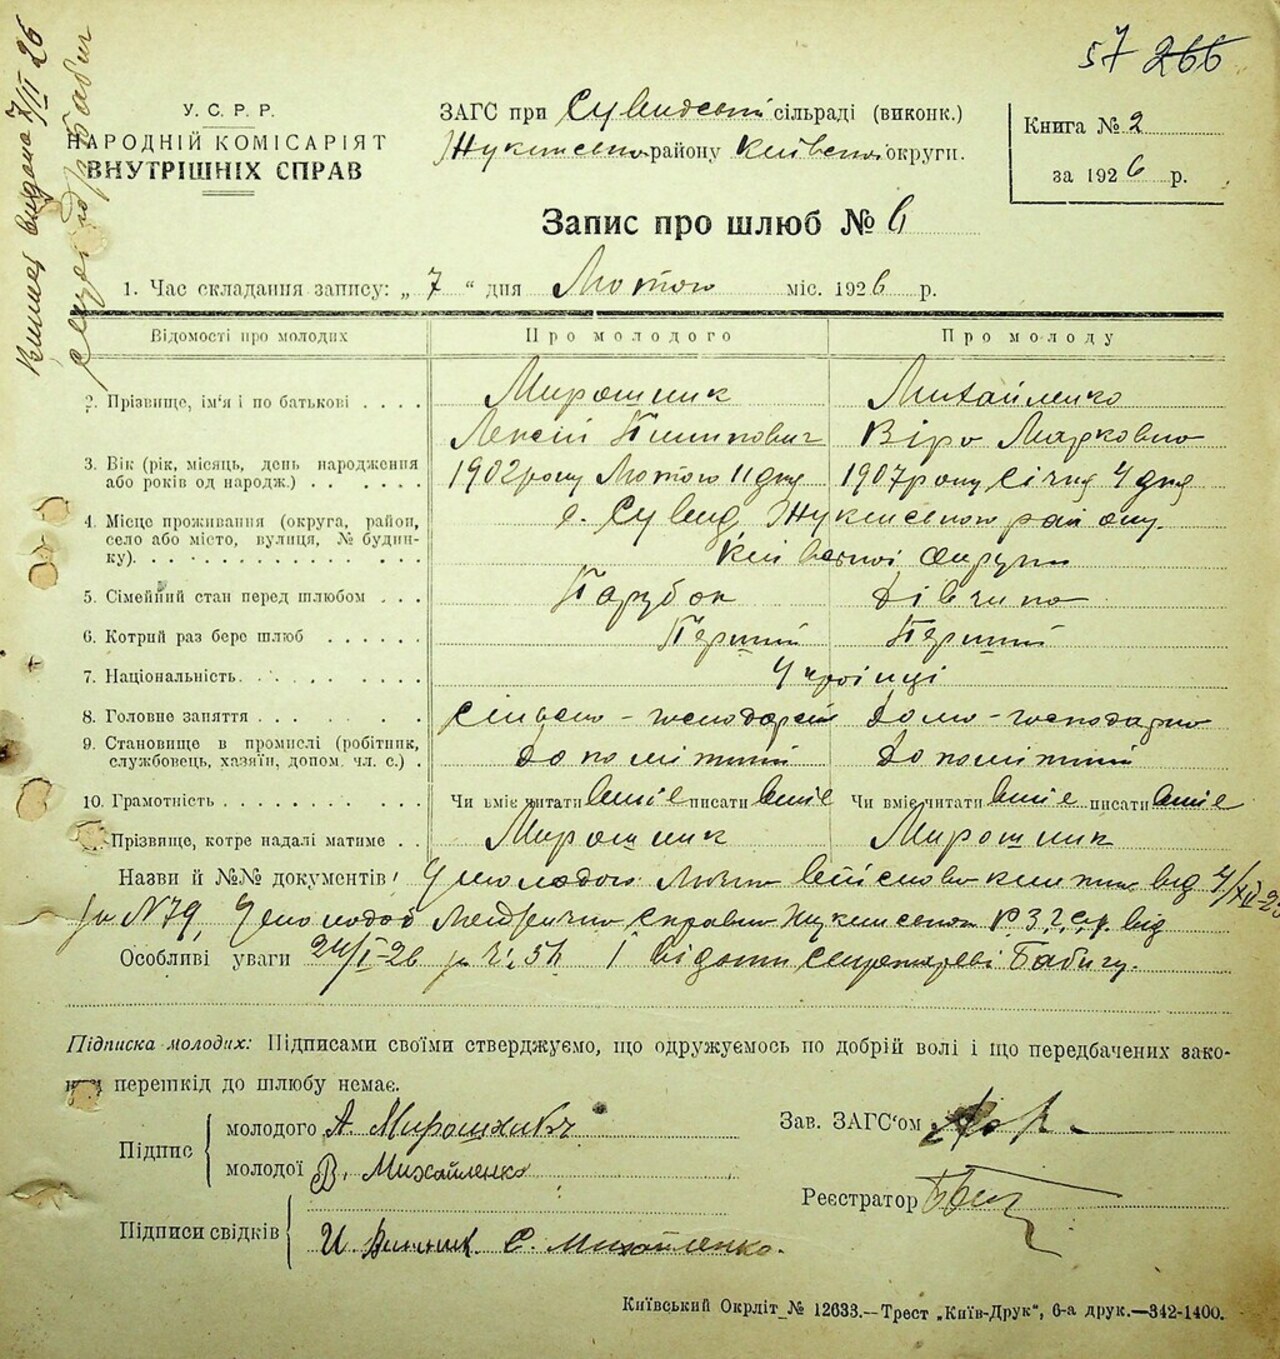 57 266
Виписка видана 7/II 26
Секретар Бабич
У. С. Р. Р.
НАРОДНІЙ КОМІСАРІЯТ
ВНУТРІШНІХ СПРАВ
ЗАГС при Сувидській сільраді (виконк.)
Жукинсько району Київської округи.
Книга № 2
за 1926 р.
Запис про шлюб № 6
1. Час складання запису: „ 7 “ дня Лютого міс. 1926 р.
Відомості про молодих Про молодого Про молоду
2. Прізвище, ім'я і по батькові . . . . Мирошник Михайленко
Лексій Пилипович Віра Марковна
3. Вік (рік, місяць, день народження або років од народж.) 1902 року Лютого 11 дня 1907 року Січня 4 дня
4. Місце проживання (округа, район, село або місто, вулиця, № будинку). с. Сувид, Жукинського району.
Київської округи
5. Сімейний стан перед шлюбом . . . Парубок Дівчина
6. Котрий раз бере шлюб . . . . . . Перший Перший
7. Національність. Українці
8. Головне заняття Сільсько-господарство Домо-господарка
9. Становище в промислі (робітник, службовець, хазяїн, допом. чл. с.) . Допоміжний Допоміжний
10. Грамотність Чи вміє читати вміє писати вміє Чи вміє читати вміє писати вміє
Прізвище, котре надалі матиме . . Мирошник Мирошник
Назви й №№ документів: У молодого Лична військова книжка від 4/XII-25
за N 79, У молодой справка Жукинського від
Особливі уваги 24/I-26 за ч. 54 І відомти секретареві Бабичу.
Підписка молодих: Підписами своїми стверджуємо, що одружуємось по добрій волі і що передбачених зако-
ном перешкід до шлюбу немає.
Підпис
молодого А. Мирошникъ
молодої В. Михайленко
Зав. ЗАГС'ом
Реєстратор
Підписи свідків И. Винник. С. Михайленко.
Київський Окрліт № 12633.—Трест „Київ-Друк“, 6-а друк.—342-1400.